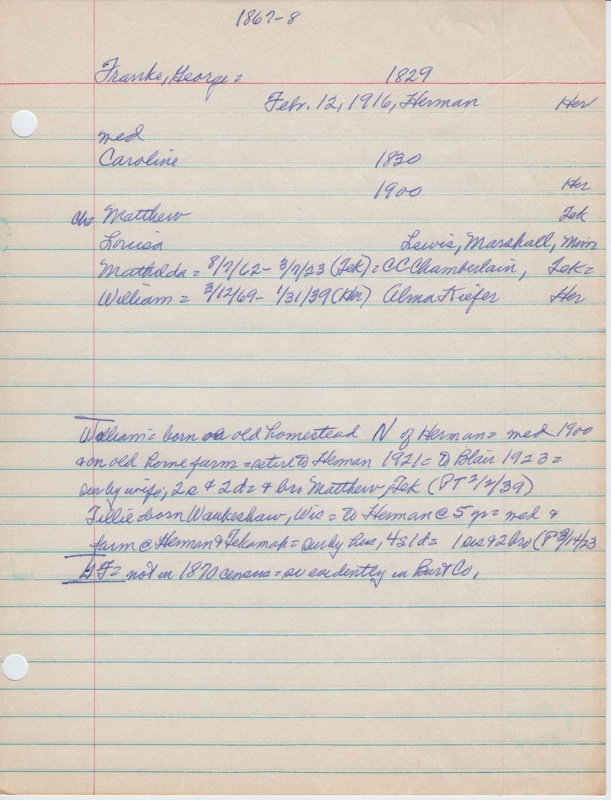 1867-8
Franke, George = 1829
Febr. 12, 1916, Herman Her
med
Caroline 1830
1900 Her
chr Matthew Tek
Louisa Lewis, Marshall, Minn
Mathilda = 8/7/62 - 3/7/23 (Tek) = CC Chamberlain, Tek =
William = 3/12/69 - 1/31/39 (Her) Alma Kiefer Her
William = born on old homestead N of Herman = med 1900
& on old home farm = retire to Herman 1921 = to Blair 1923 =
surby wife, 2s & 2d = & bro Matthew, Tek (PT 2/2/39)
Tillie = born Waukeshaw, Wis = to Herman @ 5 yr = med &
farm @ Herman & Tekamah = surby hus, 4s 1d = 1 sis & 2 bro (P 3/14/23
GF = not in 1870 census = so evidently in Burt Co,